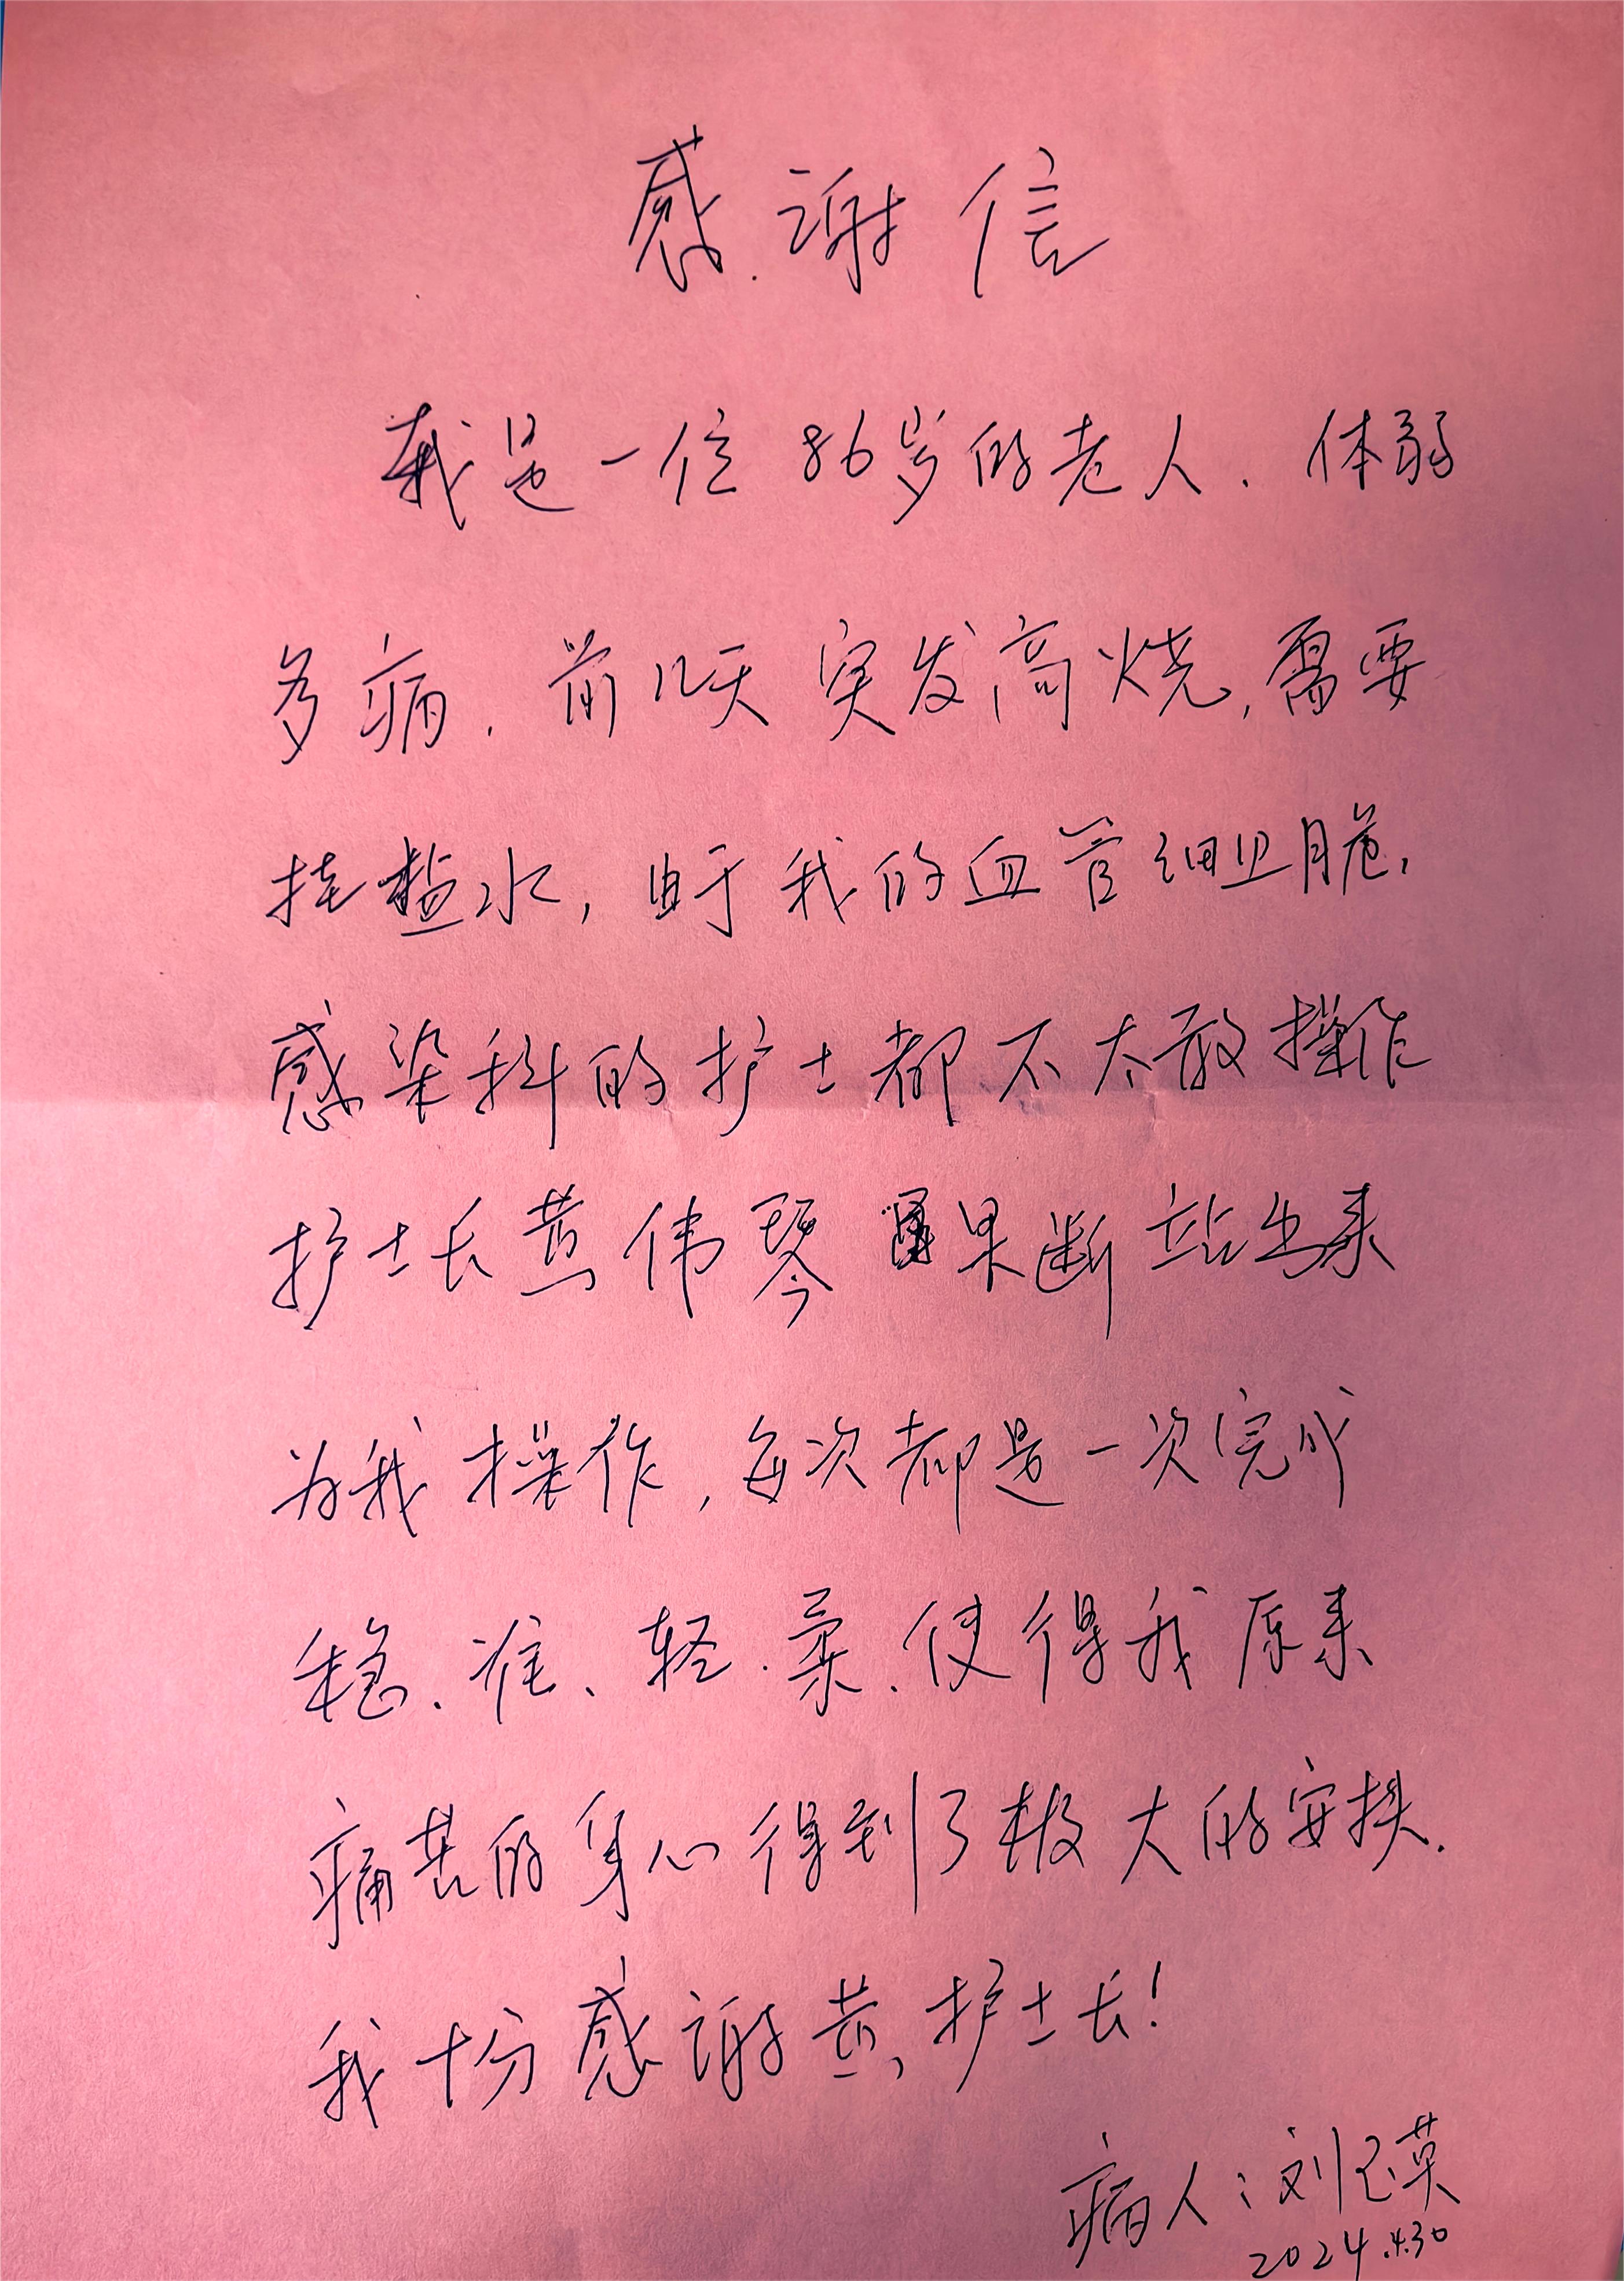 感谢信
我是一位86岁的老人.体弱
多病.前几天突发高烧,需要
挂盐水,由于我的血管细且脆,
感染科的护士都不太敢操作
护士长黄伟琴果断站出来
为我操作,每次都是一次完成
稳、准、轻.柔.使得我原来
痛苦的身心得到了极大的安抚.
我十分感谢黄护士长!
病人:刘 英
2024.4.30